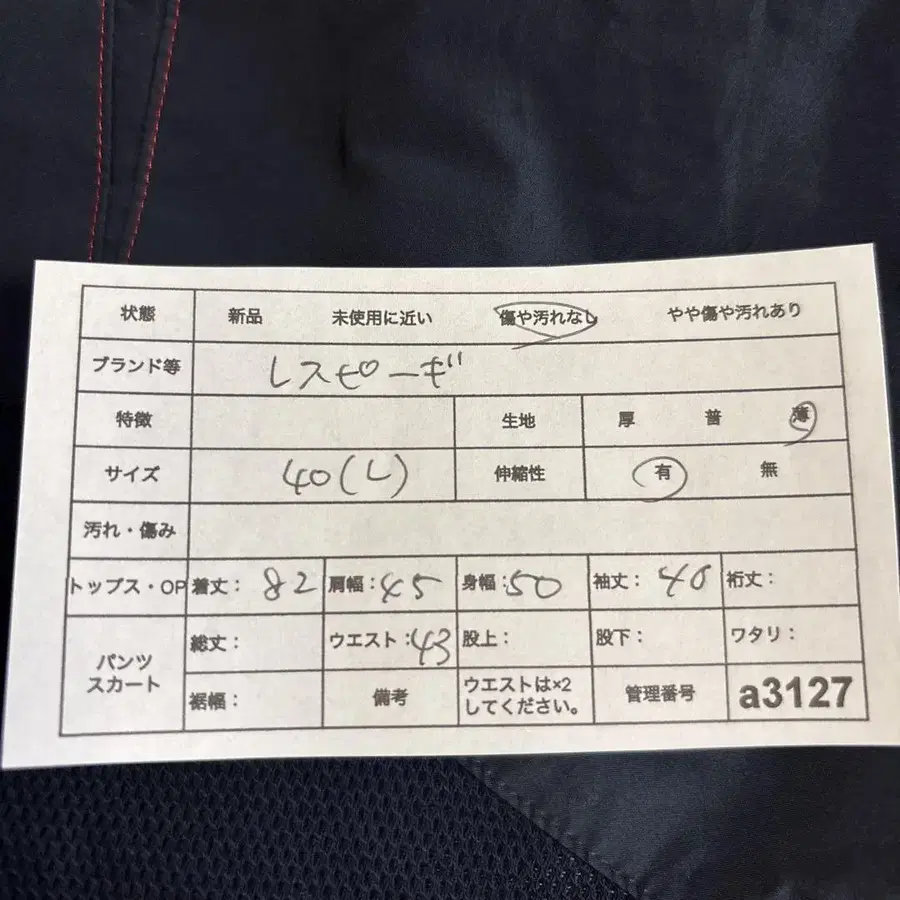 状態 新品 未使用に近い 傷や汚れなし やや傷や汚れあり
ブランド等 レスピーギ
特徴 生地 厚 普 薄
サイズ 40(L) 伸縮性 有 無
汚れ・傷み
トップス・OP 着丈:82 肩幅:45 身幅:50 袖丈:40 裄丈:
パンツ スカート 総丈: ウエスト:43 股上: 股下: ワタリ:
裾幅: 備考 ウエストは×2 してください。 管理番号 a3127